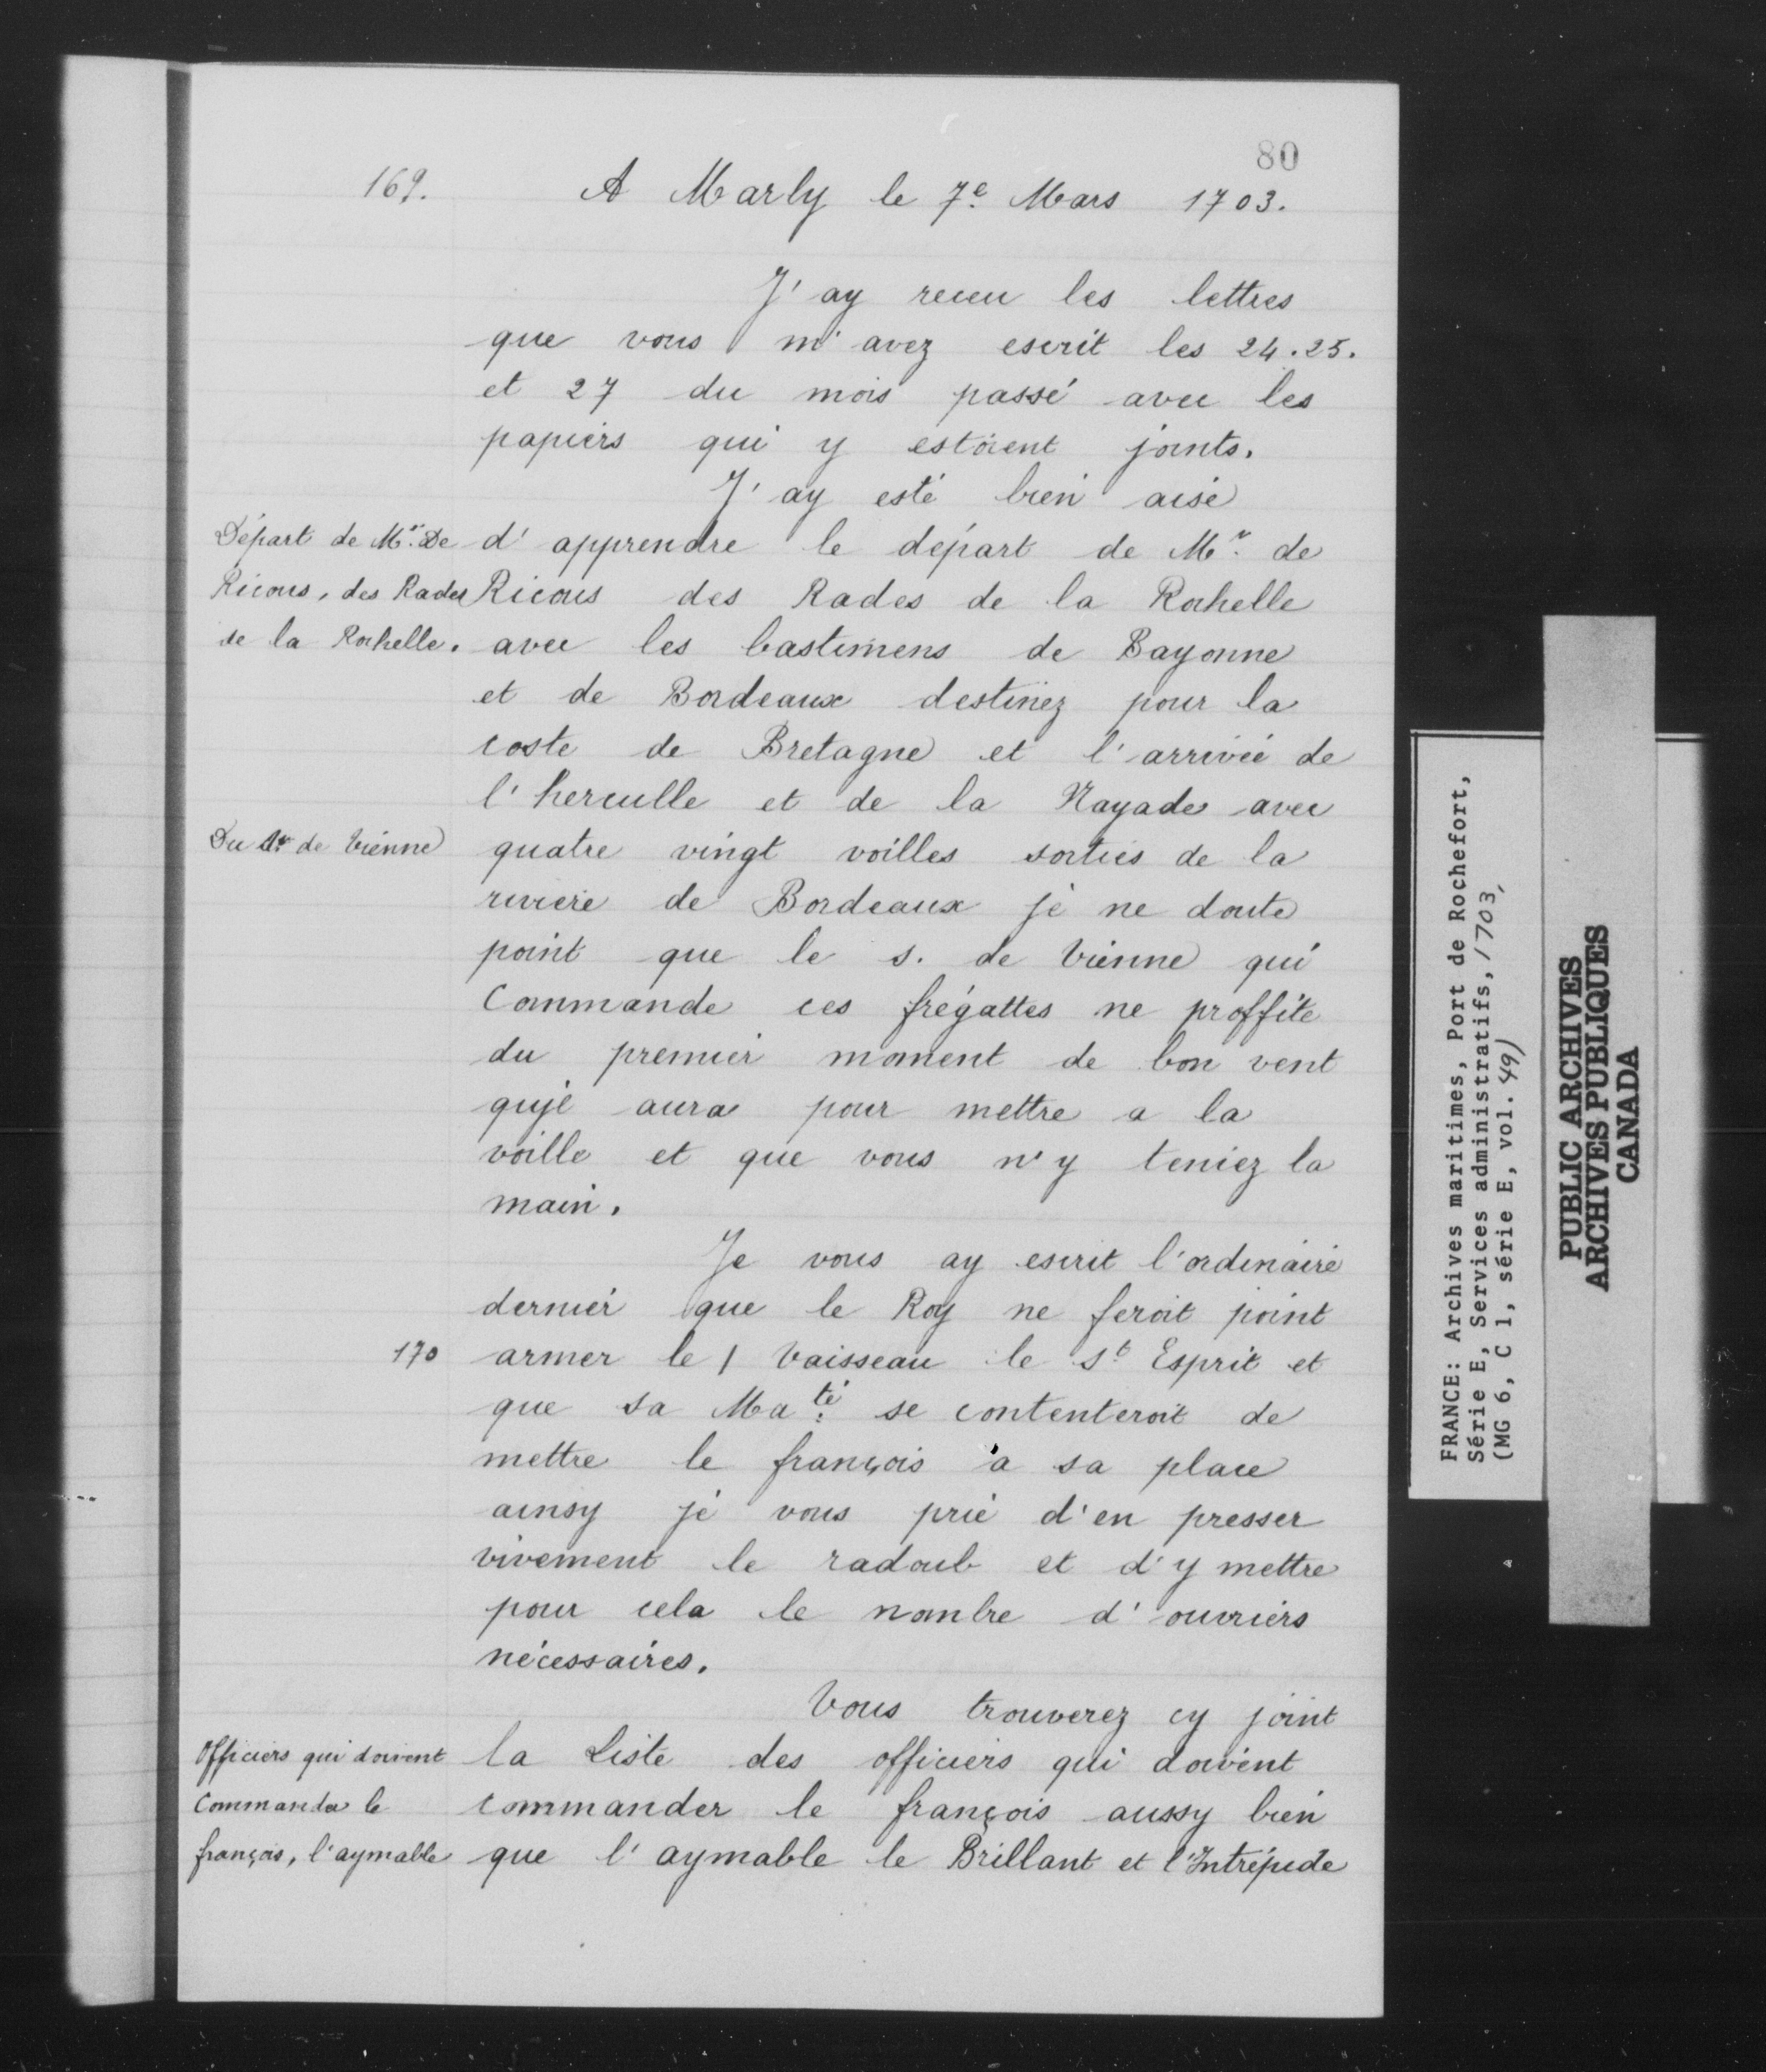 80
169. A Marly le 7e. Mars 1703.
J'ay receu les lettres
que vous m'avez escrit les 24. 25.
et 27 du mois passé avec les
papiers qui y estoient joints.
J'ay esté bien aise
Départ de Mr. De
Ricous, des Rades
de la Rochelle.
d'apprendre le départ de Mr. de
Ricous des Rades de la Rochelle
avec les bastimens de Bayonne
et de Bordeaux destinez pour la
coste de Bretagne et l'arrivée de
l'herculle et de la Nayade avec
Du Sr de Vienne
quatre vingt voilles sorties de la
riviere de Bordeaux je ne doute
point que le s. de Vienne qui
Commande ces frégattes ne proffite
du premier moment de bon vent
qu'il aura pour mettre a la
voille et que vous n'y teniez la
main.
Je vous ay escrit l'ordinaire
dernier que le Roy ne feroit point
170 armer le / Vaisseau le St Esprit et
que sa Maté. se contenteroit de
mettre le françois à sa place
ainsy je vous prie d'en presser
vivement le radoub et d'y mettre
pour cela le nombre d'ouvriers
nécessaires.
Vous trouverez cy joint
Officiers qui doivent
Commander le
françois, l'aymable
la Liste des officiers qui doivent
commander le françois aussy bien
que l'aymable le Brillant et l'Intrépide
FRANCE: Archives maritimes, Port de Rochefort,
Série E, Services administratifs, 1703,
(MG 6, C 1, série E, vol. 49)
PUBLIC ARCHIVES
ARCHIVES PUBLIQUES
CANADA